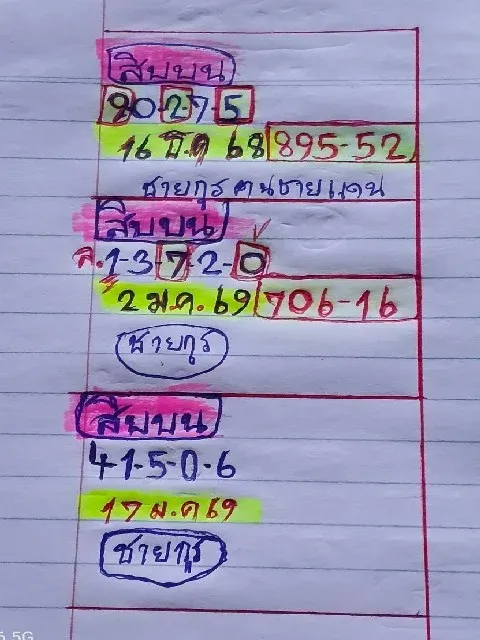 สิบบน
80-27-5
16 มี.ค 68 895-52
ชายกุร คนชายแดน
สิบบน
ล.1-3-7-2-0
2 ม.ค. 69 706-16
ชายกุร
สิบบน
4-1-5-0-6
17 ม.ค 69
ชายกุร
5.5G